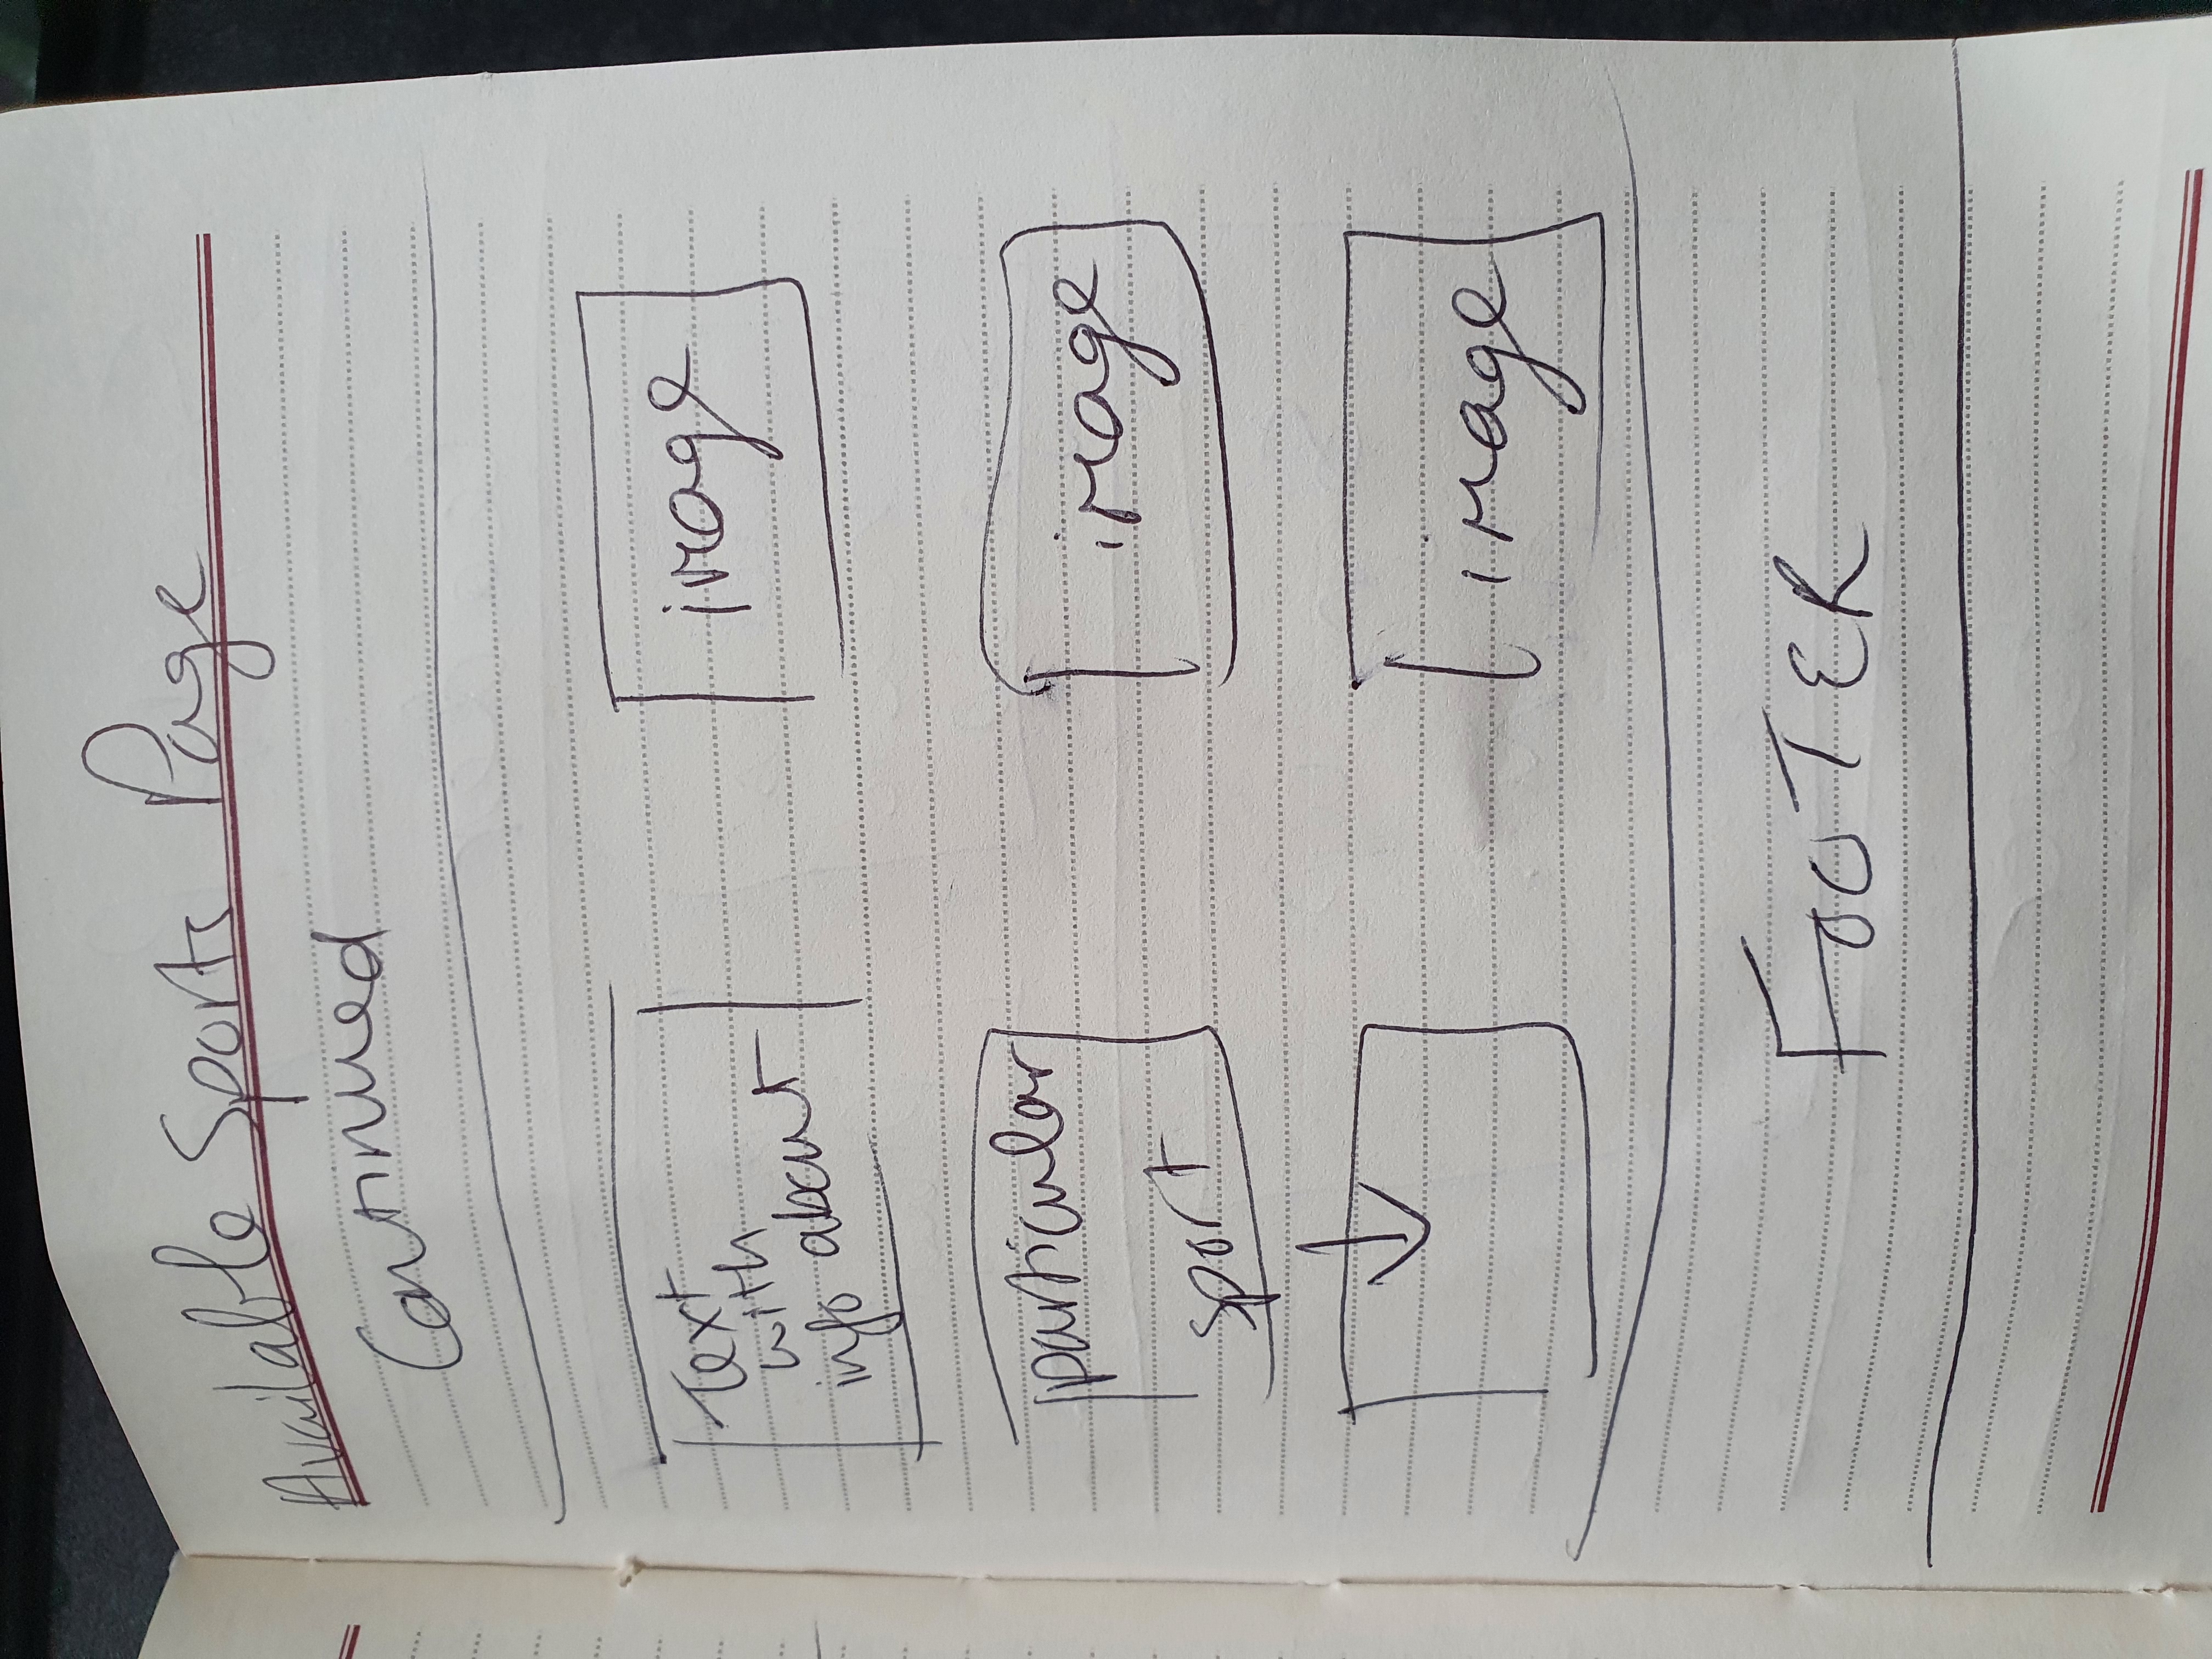 Available Sports Page
Continued
Text
with
info about
image
particular
sport
image
image
FOOTER